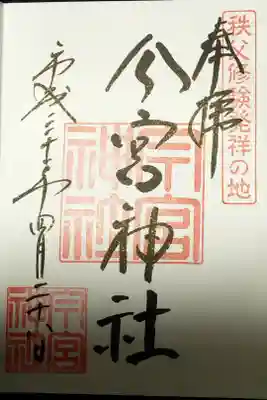 秩父修験発祥の地
奉拝
今宮神社
今宮
神社
平成二十年四月二十八日
今宮
神社